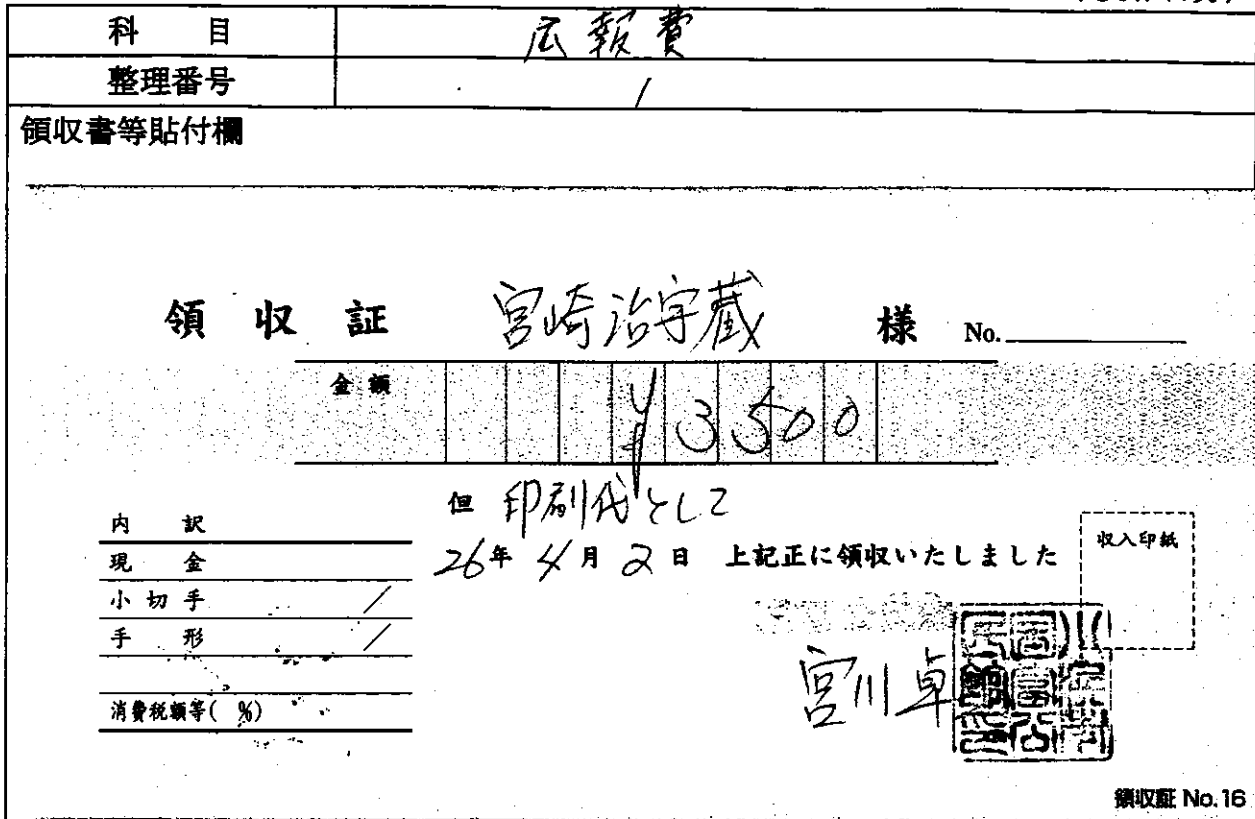 科 目 広報費
整理番号 1
領収書等貼付欄
領収証 宮崎治宇蔵 様 No.
金額 ¥3500
但 印刷代として
26年4月2日 上記正に領収いたしました
収入印紙
内訳
現金
小切手 /
手形 /
消費税額等( %)
宮川卓
領収証 No.16